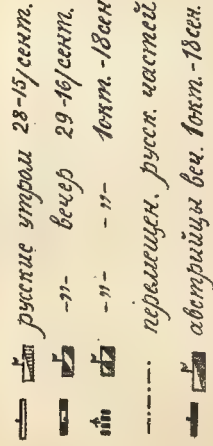 русские утром 28-15/сент.
-„- вечер 29-16/сент.
-„- -„- 1окт.-18сен
перемещен. русск. частей
австрийцы веч. 1окт.-18сен.